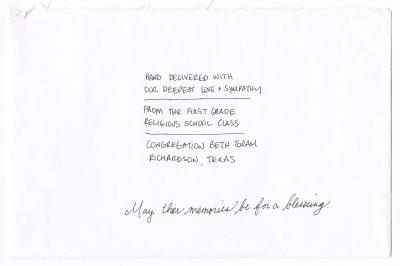 HAND DELIVERED WITH
OUR DEEPEST LOVE + SYMPATHY
FROM THE FIRST GRADE
RELIGIOUS SCHOOL CLASS
CONGREGATION BETH TORAH
RICHARDSON, TEXAS
May thier memories be for a blessing.